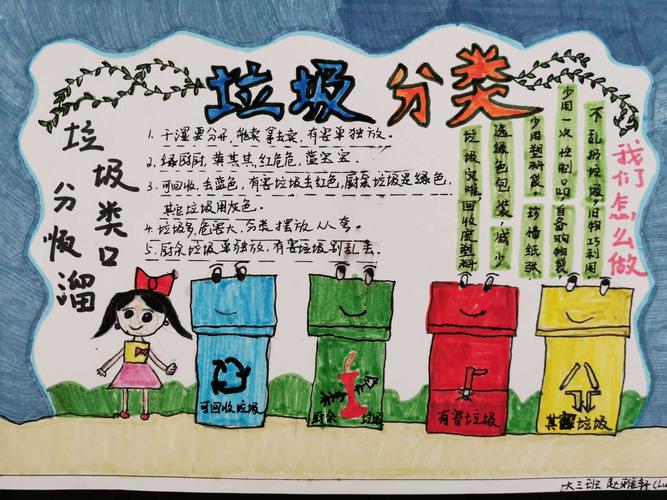 垃圾分类
垃圾类口
分恢溜
1. 干湿要分开，能卖拿去卖，有害单独放。
2. 绿厨厨，黄其其，红色危，蓝宝宝。
3. 可回收，去蓝色，有害垃圾去红色，厨余垃圾是绿色，
其它垃圾用灰色。
4. 垃圾多，危害大，分类摆放人人夸。
5. 厨余垃圾单独放，有害垃圾别乱丢。
我们怎么做
不乱扔垃圾，旧物巧利用
少用一次性制品，自备购物袋
少用塑料袋 珍惜纸张
选绿色包装，减少
垃圾灾难，回收废塑料
可回收垃圾
厨余垃圾
有害垃圾
其它垃圾
大三班 赵雅轩